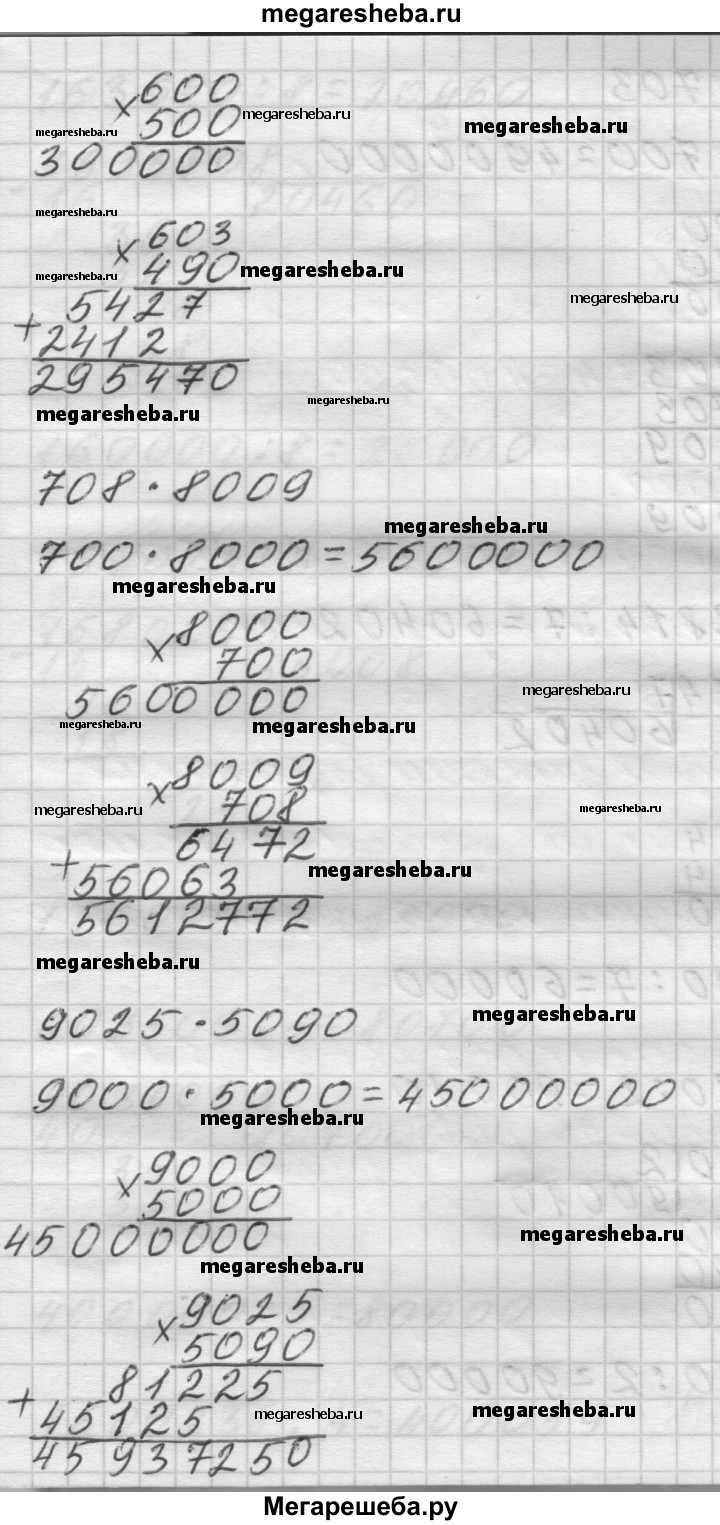 megaresheba.ru
× 600
500 megaresheba.ru
megaresheba.ru megaresheba.ru
300000
megaresheba.ru
× 603
megaresheba.ru 490 megaresheba.ru
5427 megaresheba.ru
+ 2412
295470
megaresheba.ru megaresheba.ru
708 · 8009
megaresheba.ru
700 · 8000 = 5600000
megaresheba.ru
× 8000
700
5600000 megaresheba.ru
megaresheba.ru megaresheba.ru
× 8009
megaresheba.ru 708 megaresheba.ru
6472
+ 56063 megaresheba.ru
5612772
megaresheba.ru
9025 · 5090 megaresheba.ru
9000 · 5000 = 45000000
megaresheba.ru
× 9000
5000
45000000 megaresheba.ru
megaresheba.ru
× 9025
5090
81225
+ 45125 megaresheba.ru megaresheba.ru
45937250
Мегарешеба.ру